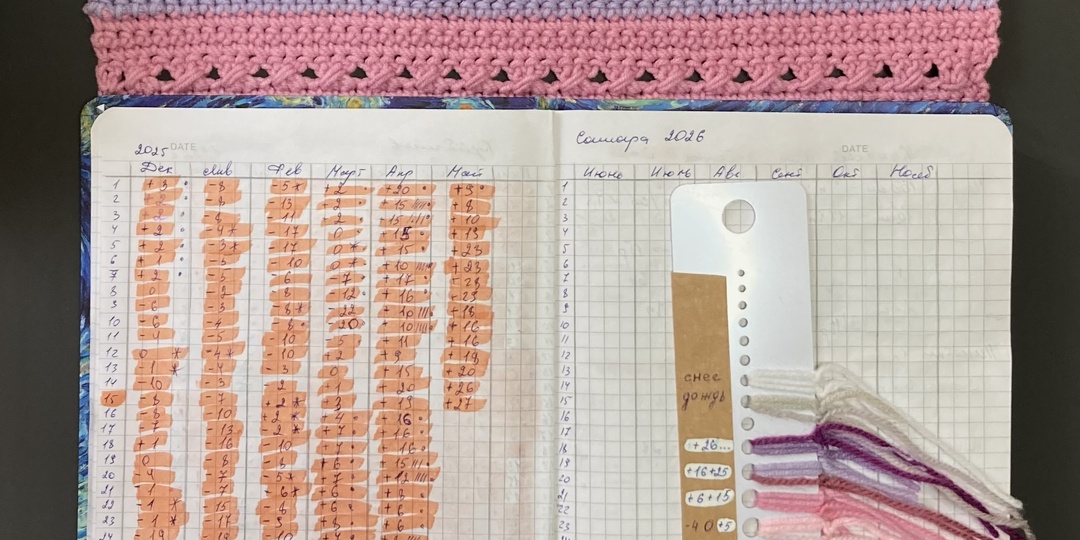 2025 DATE
Дек Янв Фев Март Апр Май
1 +3 -8 -5* +2 +20 +9
2 -8 -13 -2 +15 +8
3 -8 -11 2 +15 +10
4 +2 -4* -17 0 15 +13
5 +2 -3* -17 0* +15 +23
6 +1 -5 -10 0* +10 +23
7 +2 -5 -6 -7 +17
8 0 -2 -8 -12 +16
9 -6 -3 -8* -22 +10 +18
10 -6 -4 -8 -20 +10 +16
11 -4 -5 -10 -5 +11 +16
12 0 * -4* -10 +2 +9 +19
13 -1 * -4 -3 0 +15 +20
14 -10 -3 -2 -1 +20 +26
15 -8 -7 +2* +3 +19 +27
16 -8 -10 +2* +4 16
17 -13 -2* +7 +16
18 +1 -16 -10 +7 16
19 0 -8 +6 +15
20 -7 -5* +7 +12
21 -7 -6* +6 +8
22 -1 * -15 -8 +6 +6
23 -1 * -17 +8 +6
24 -19 -10
2026 DATE
Июнь Июль Авг Сент Окт Нояб
1
2
3
4
5
6
7
8
9
10
11
12
13
14
15
16
17
18
19
20
21
22
23
снег
дождь
+26...
+16+25
+6+15
-4 0 +5